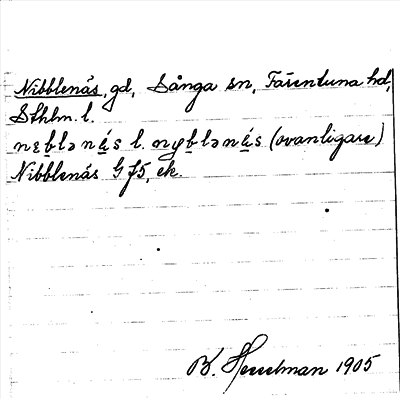 Nibblenäs, gd, Sånga sn, Färentuna hd,
Sthlm. l.
nɛblənä́s l. nyblənä́s (ovanligare)
Nibblenäs Gf5, ek.
B. Hesselman 1905